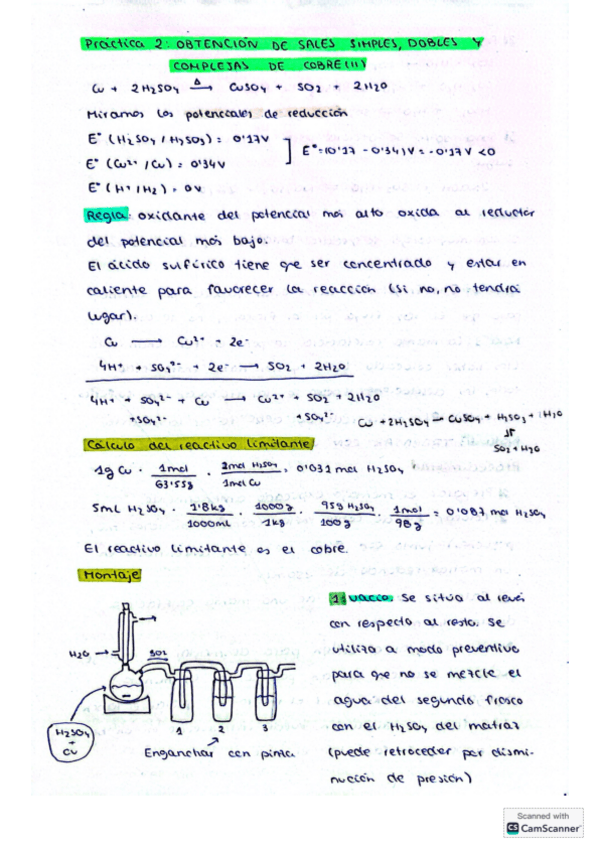 Práctica 2: OBTENCIÓN DE SALES SIMPLES, DOBLES Y
COMPLEJAS DE COBRE(II)
Cu + 2H2SO4 →Δ CuSO4 + SO2 + 2H2O
Miramos los potenciales de reducción
E° (H2SO4 / H2SO3) = 0'17V
E° (Cu2+ /Cu) = 0'34V
E° (H+ /H2) = 0V
] E°=(0'17 - 0'34)V = -0'17V <0
Regla: oxidante del potencial más alto oxida al reductor
del potencial más bajo.
El ácido sulfúrico tiene que ser concentrado y estar en
caliente para favorecer la reacción (si no, no tendrá
lugar).
Cu → Cu2+ + 2e-
4H+ + SO4 2- + 2e- → SO2 + 2H2O
4H+ + SO4 2- + Cu → Cu2+ + SO2 + 2H2O
+SO4 2- +SO4 2-
Cu + 2H2SO4 → CuSO4 + H2SO3 + 1H2O
SO2 + H2O
Cálculo del reactivo limitante
1g Cu · 1mol / 63'55g · 2mol H2SO4 / 1mol Cu = 0'031 mol H2SO4
5mL H2SO4 · 1'8kg / 1000mL · 1000g / 1kg · 95g H2SO4 / 100g · 1mol / 98g = 0'087 mol H2SO4
El reactivo limitante es el cobre.
Montaje
H2O →
SO2
H2SO4
+
Cu
1 2 3
Enganchar con pinza
1: vacío. Se sitúa al revés
con respecto al resto. Se
utiliza a modo preventivo
para que no se mezcle el
agua del segundo frasco
con el H2SO4 del matraz
(puede retroceder por dismi-
nución de presión)
Scanned with
CS CamScanner